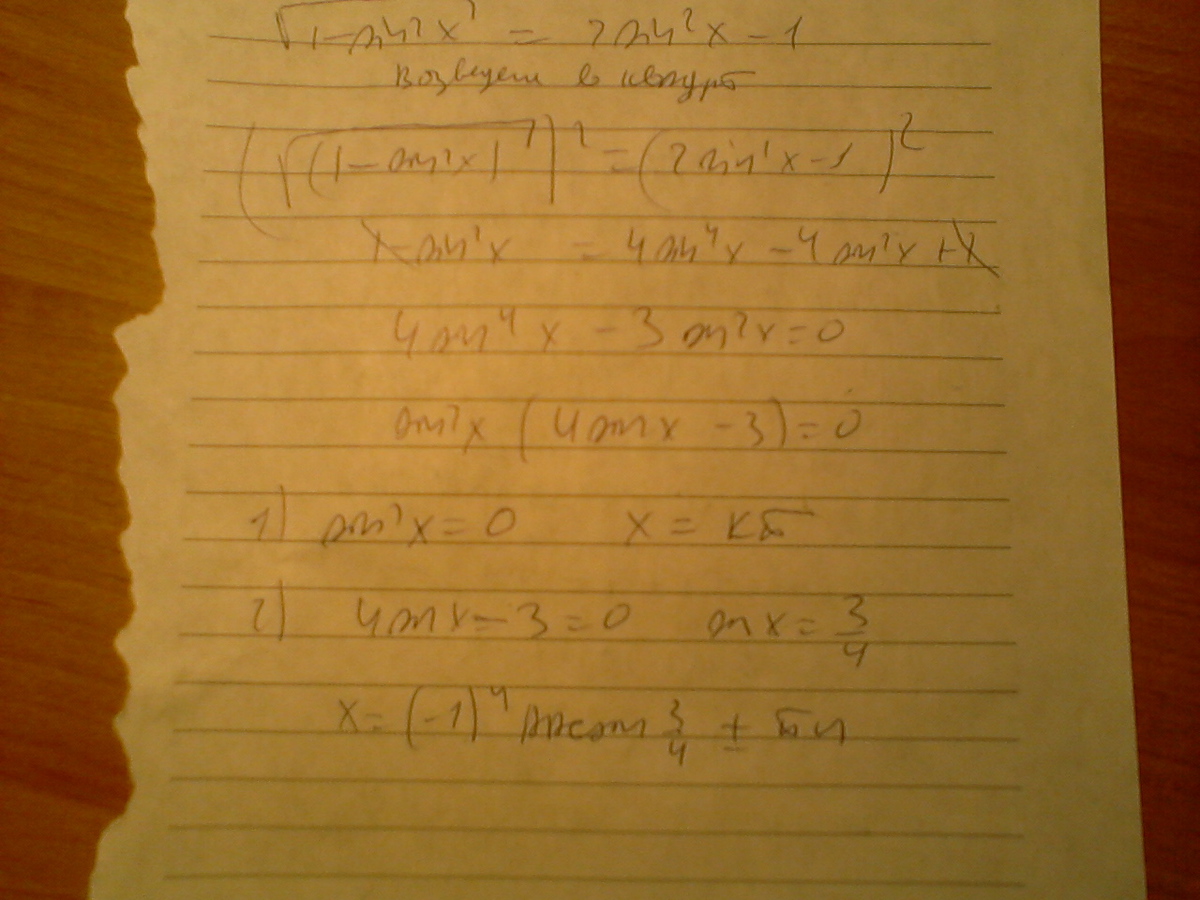 √(1-sin²x) = 2sin²x - 1
Возведем в квадрат
(√(1-sin²x))² = (2sin²x-1)²
1-sin²x = 4sin⁴x - 4sin²x + 1
4sin⁴x - 3sin²x = 0
sin²x (4sinx - 3) = 0
1) sin²x = 0 x = кπ
2) 4sinx - 3 = 0 sinx = 3/4
x = (-1)ⁿ arcsin 3/4 ± πn